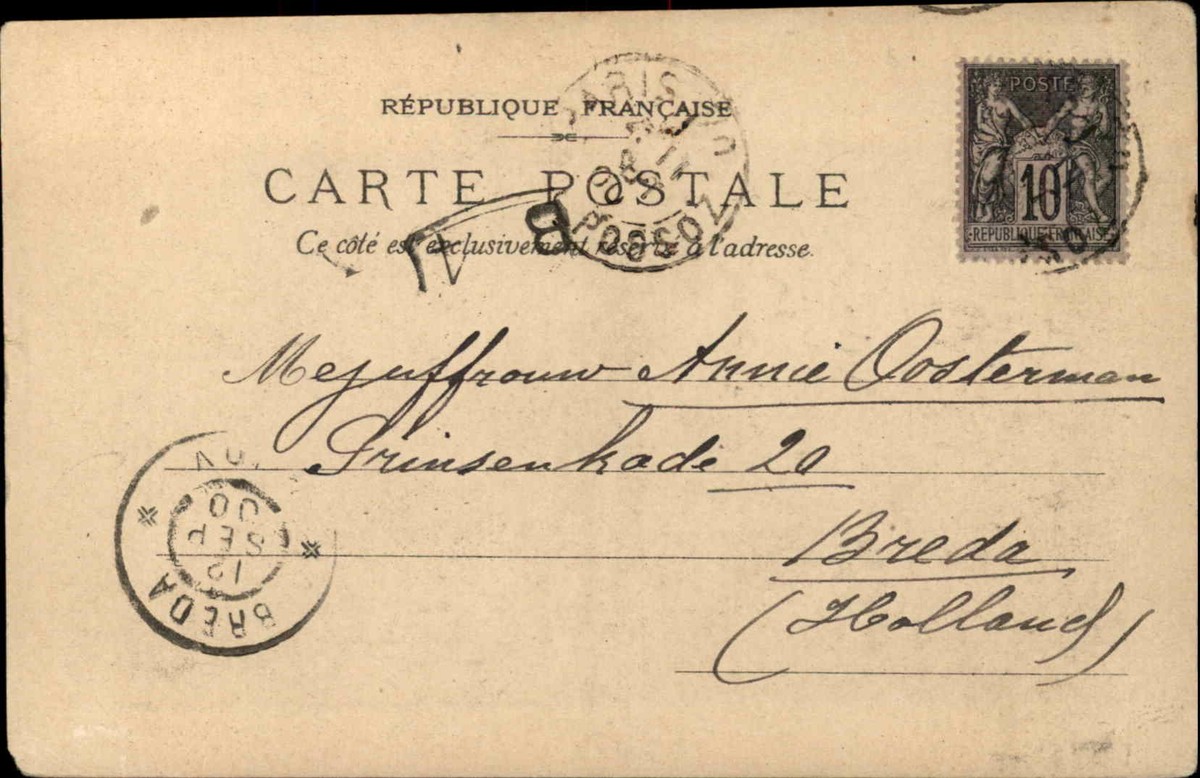 RÉPUBLIQUE FRANÇAISE
CARTE POSTALE
Ce côté est exclusivement réservé à l'adresse.
POSTE
10
REPUBLIQUE FRANÇAISE
PARIS
B
Mejuffrouw Annie Oosterman
Prinsenkade 20
Breda
(Holland)
BREDA
12
SEP
00